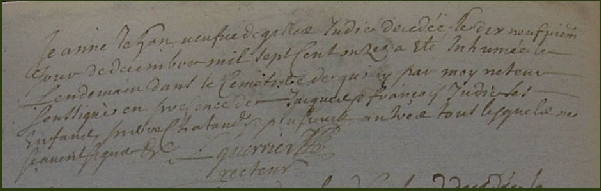 Jeanne le han veufve de gilles Judice decedée le dix neufviem
Jour de decembre mil sept cent onze a été Inhumée le
lendemain dans le Cemetiere de par moy recteur
soussigné en presence de Jacques et françois Judice ses
Enfans, plusieurs autres tous lesquels ne
scavent signer
guerrier
recteur